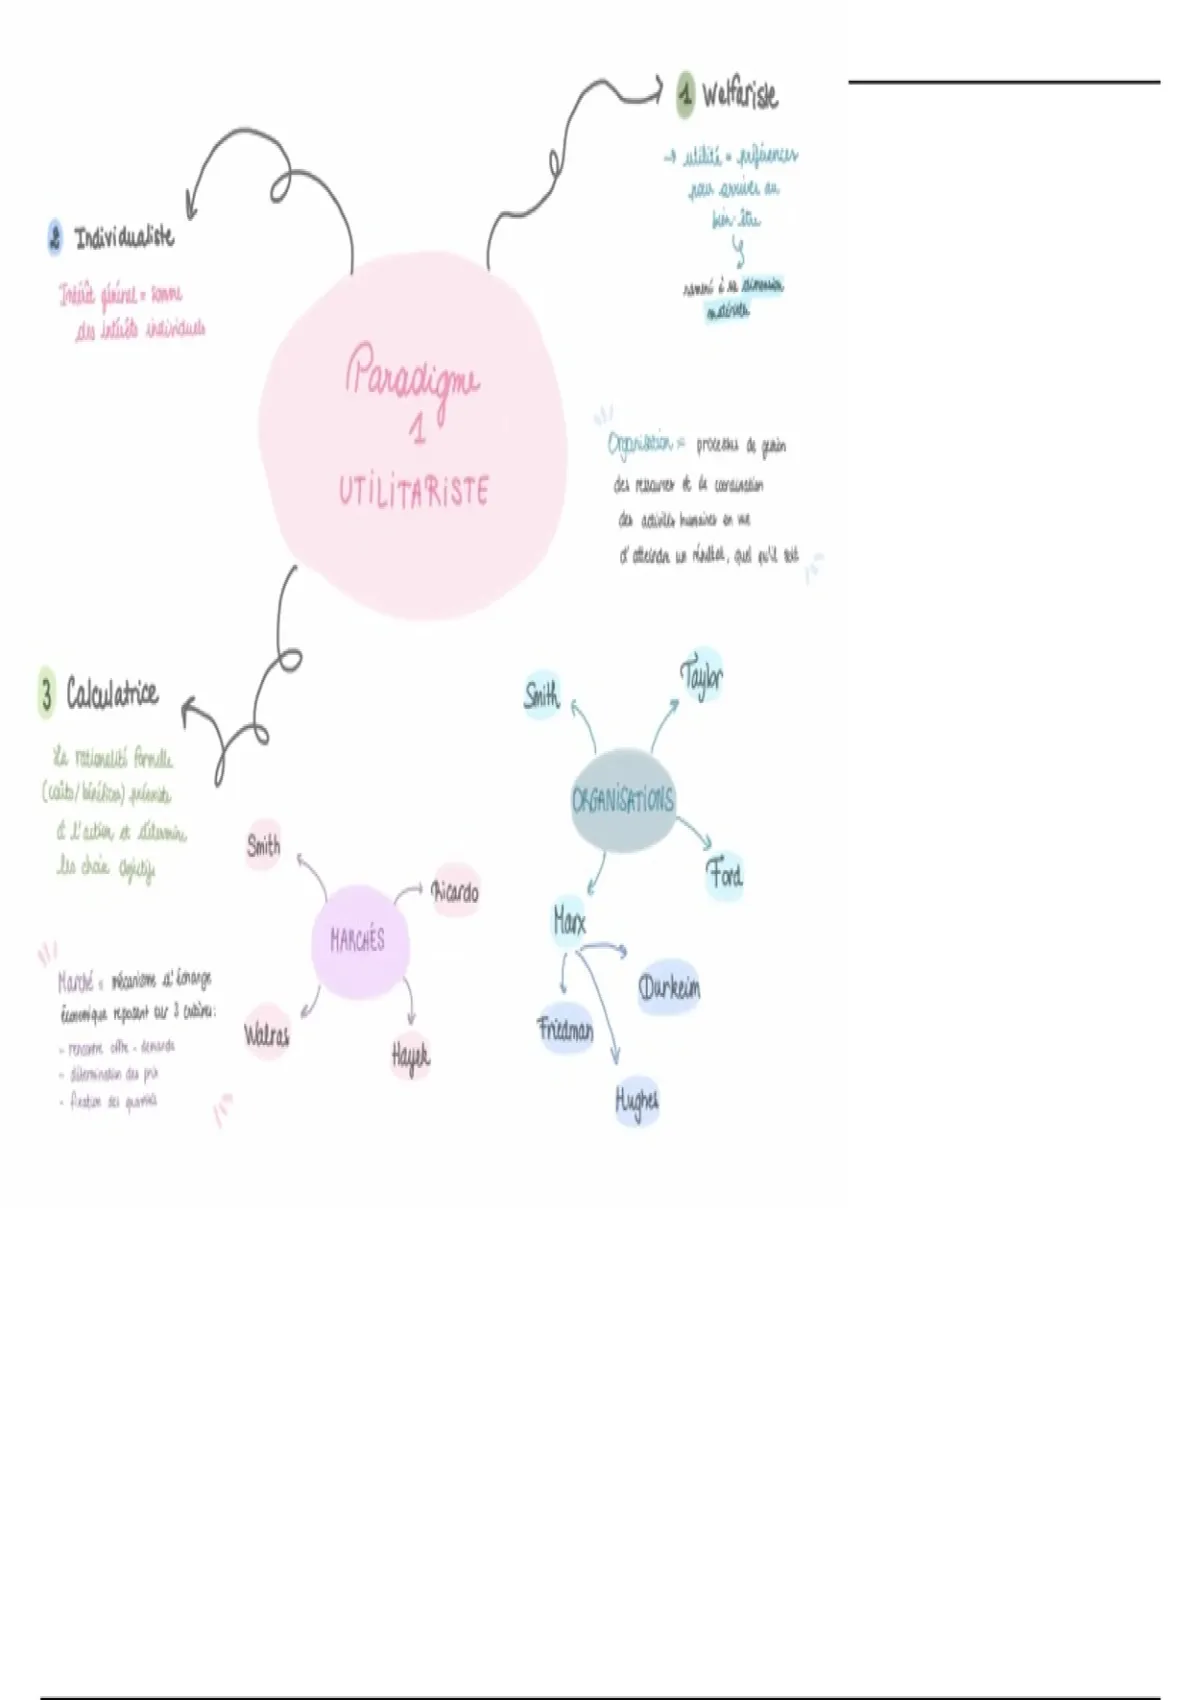 1 Welfariste
→ utilité = préférences
pour arriver au
bien être
ramené à sa dimension
matérielle
2 Individualiste
Intérêt général = somme
des intérêts individuels
Paradigme
1
UTILITARISTE
Organisation = processus de gestion
des ressources et de coordination
des activités humaines en vue
d'atteindre un résultat, quel qu'il soit
3 Calculatrice
La rationalité formelle
(coûts/bénéfices) préexiste
à l'action et détermine
les choix objectifs
Smith
Taylor
ORGANISATIONS
Ford
Marx
Durkeim
Friedman
Hughes
Smith
Ricardo
MARCHÉS
Walras
Hayek
Marché = mécanisme d'échange
économique reposant sur 3 critères:
- rencontre offre - demande
- détermination des prix
- fixation des quantités